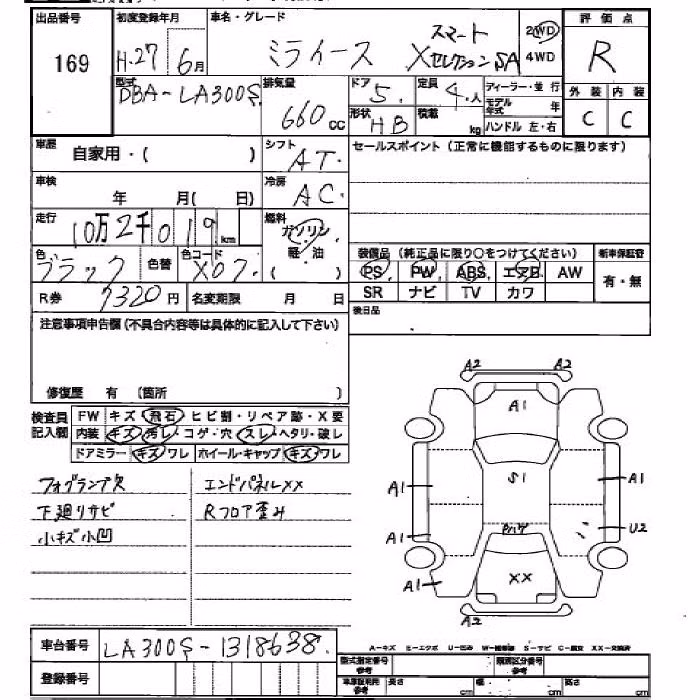 出品番号 初度登録年月 車名・グレード 評価点
169 H.27 6月 ミライース スマート Xセレクション SA 2WD 4WD R
型式 DBA-LA300S 排気量 660 cc ドア 5 定員 4人 ディーラー・並行 外装 内装
形状 HB 積載 kg モデル年式 年 ハンドル 左・右 C C
車歴 自家用・( ) シフト AT セールスポイント (正常に機能するものに限ります)
車検 年 月( 日) 冷房 AC
走行 10万2千019 km 燃料 ガソリン・軽・油 ( )
色 ブラック 色替 色コード X07 装備品 (純正品に限り○をつけてください) 新車保証書
PS PW ABS エアB AW 有・無
SR ナビ TV カワ
R券 7320円 名変期限 月 日 後日品
注意事項申告欄 (不具合内容等は具体的に記入して下さい)
修復歴 有 (箇所 )
検査員記入欄 FW キズ・飛石・ヒビ割・リペア跡・X要
内装 キズ・汚レ・コゲ・穴・スレ・ヘタリ・破レ
ドアミラー キズ・ワレ ホイール・キャップ キズ・ワレ
フォグランプ欠 エンドパネルXX
下廻りサビ Rフロア歪み
小キズ小凹
A2 A2
A1
A1 S1 A1
A1 U2
A1 XX
A2
車台番号 LA300S-1318638
登録番号
A-キズ E-エクボ U-凹み W-補修跡 S-サビ C-腐食 XX-交換済
型式指定番号 参考 類別区分番号 参考
車庫証明用 参考 長さ cm 幅 cm 高さ cm